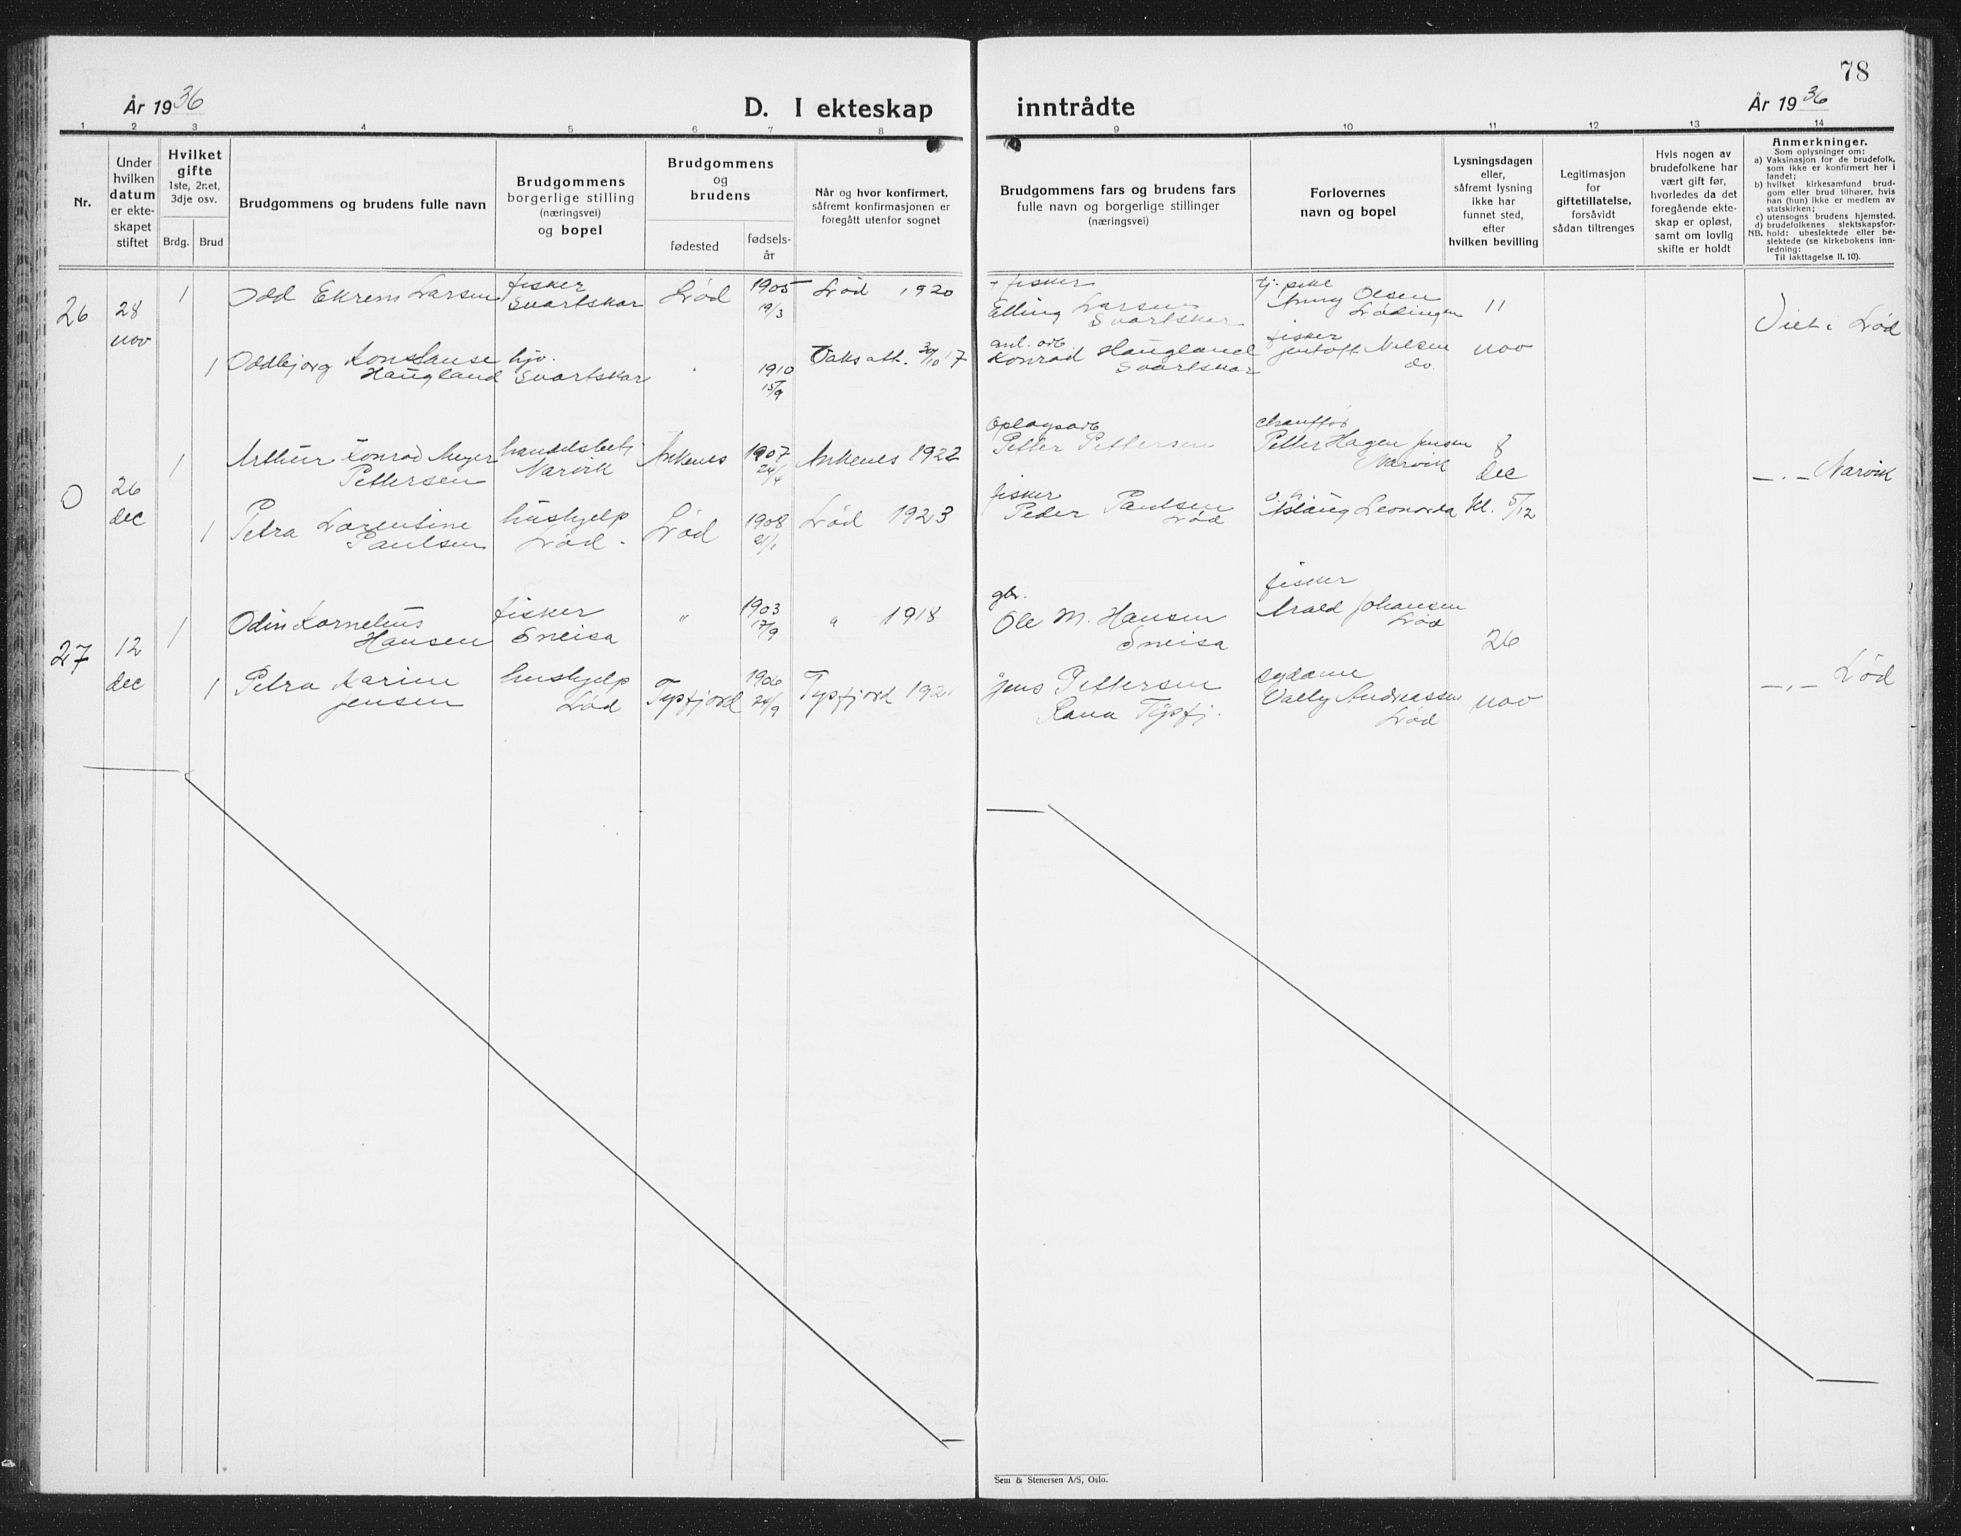 78
År 1936
D. I ekteskap inntrådte
År 1936
1 2 3 4 5 6 7 8 9 10 11 12 13 14
Nr.
Under hvilken datum er ekteskapet stiftet
Hvilket gifte
1ste, 2net, 3dje osv.
Brdg. Brud
Brudgommens og brudens fulle navn
Brudgommens borgerlige stilling (næringsvei) og bopel
Brudgommens og brudens
fødested
fødselsår
Når og hvor konfirmert, såfremt konfirmasjonen er foregått utenfor sognet
Brudgommens fars og brudens fars fulle navn og borgerlige stillinger (næringsvei)
Forlovernes navn og bopel
Lysningsdagen eller, såfremt lysning ikke har funnet sted, efter hvilken bevilling
Legitimasjon for giftetillatelse, forsåvidt sådan tiltrenges
Hvis nogen av brudefolkene har vært gift før, hvorledes da det foregående ekteskap er opløst, samt om lovlig skifte er holdt
Anmerkninger.
Som oplysninger om:
a) Vaksinasjon for de brudefolk, som ikke er konfirmert her i landet;
b) hvilket kirkesamfund brudgom eller brud tilhører, hvis han (hun) ikke er medlem av statskirken;
c) utensogns brudens hjemsted.
d) brudefolkenes slektskapsforhold: ubeslektede eller beslektede (se kirkebokens innledning:
NB. Til iakttagelse II. 10).
26
28 nov
1 Odd Ekrem Larsen fisker Svartskar Lød 1905 19/3 Lød 1920
+ fisker Elling Larsen Svartskar
Anny Olsen Lødingen
11 nov
Viet i Lød
1 Oddbjorg Konstanse Haugland hjv. Svartskar " 1910 15/9 Daksatt. 30/10 17
anl. arb Konrad Haugland Svartskar
fisker Jentoft Nilsen do.
0
26 dec
1 Arthur Konrad Meyer Pettersen handelsbetj Narvik Ankenes 1907 24/4 Ankenes 1922
Oplagsarb Petter Pettersen
chauffør Petter Hagen Jensen Narvik
8 dec
— " — Narvik
1 Petra Larentine Paulsen hushjelp Lød. Lød 1908 21/1 Lød 1923
fisker Peder Paulsen Lød
Aslaug Leonarda
Kl. 5/12
27
12 dec
1 Odin Kornelius Hansen fisker Sneisa " 1903 17/9 " 1918
gbr. Ole M. Hansen Sneisa
fisker Arald Johansen Lød
26 nov
— " — Lød
1 Petra Karine Jensen hushjelp Lød Tysfjord 1906 24/9 Tysfjord 192
Jens Pettersen Rana Tysfj.
sydame Vally Andreassen Lød
Sem & Stenersen A/S, Oslo.